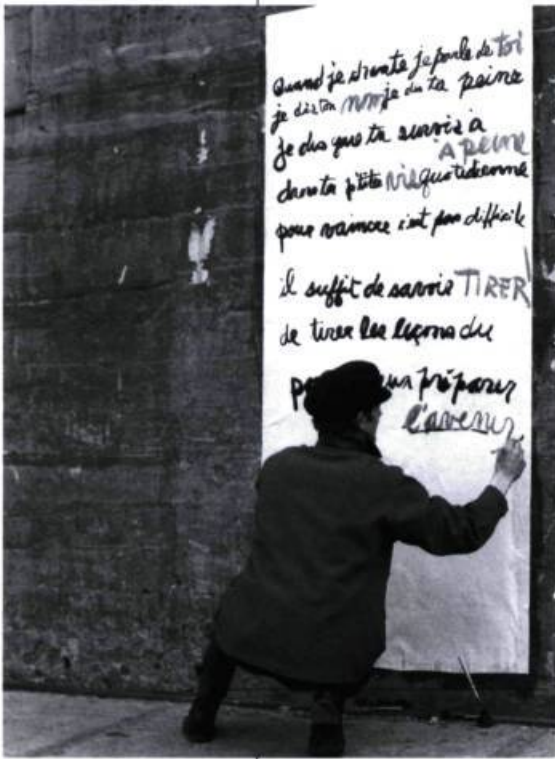 Quand je chante je parle de toi
je dis ton nom je dis ta peine
Je dis que tu survis à
A peine
dans ta p'tite vie quotidienne
pour vaincre c'est pas difficile
il suffit de savoir TIRER
de tirer les leçons du
pour préparer
l'avenir